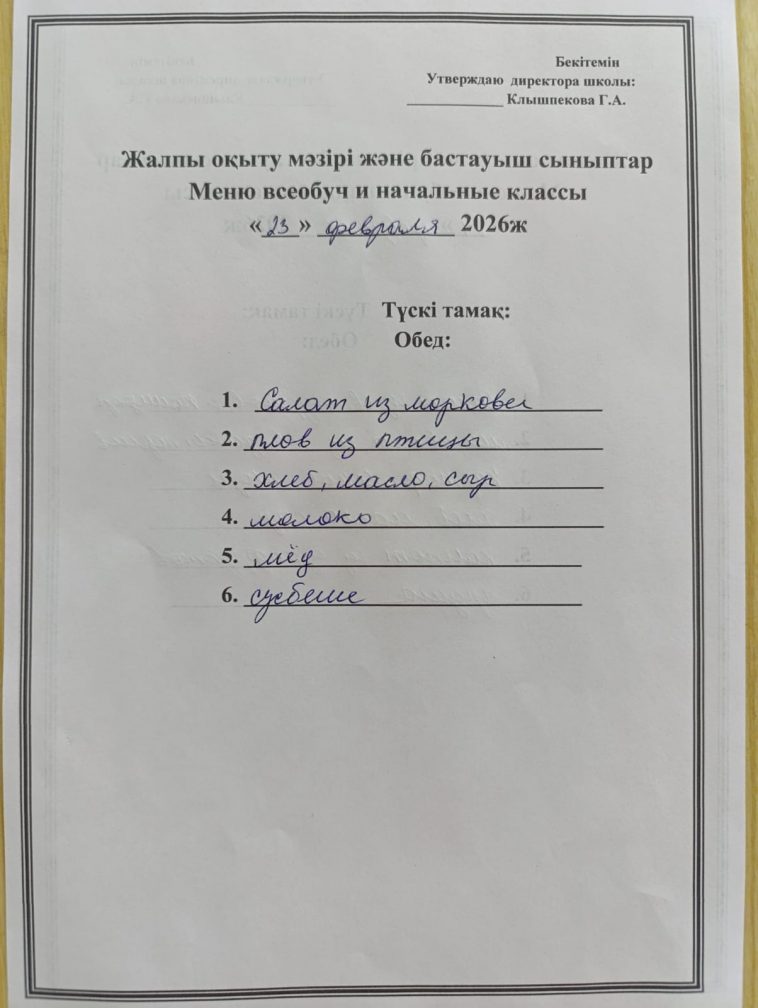 Бекітемін
Утверждаю директора школы:
______________ Клышпекова Г.А.
Жалпы оқыту мәзірі және бастауыш сыныптар
Меню всеобуч и начальные классы
«23» февраля 2026ж
Түскі тамақ:
Обед:
1. Салат из моркови
2. плов из птицы
3. хлеб, масло, сыр
4. молоко
5. мёд
6.